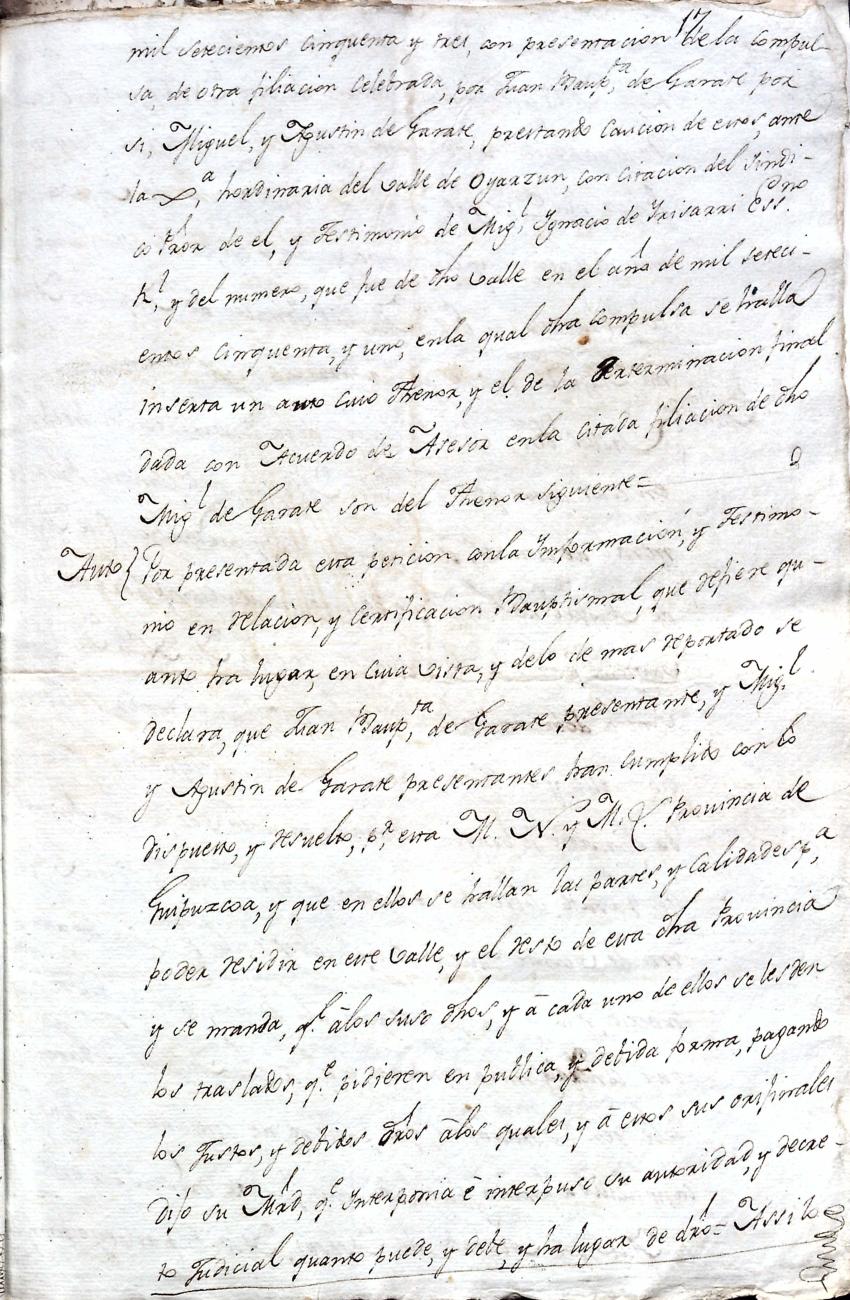 17
mil setecientos cinquenta y tres, con presentacion de la compul-
sa, de otra filiacion celebrada, por Juan Baup.ta de Garate por
si, Miguel, y Agustin de Garate, prestando caucion de estos, ante
la Xa, hordinaria del Valle de Oyarzun, con citacion del sindi-
co Pror de el, y Testimonio de Mig.l Ygnacio de Yrisarri Ess.no
R.l, y del numero, que fue de dho Valle en el año de mil seteci-
entos cinquenta, y uno, enla qual dha compulsa se halla
inserta un auto cuio thenor, y el de la determinacion final
dada con Acuerdo de Asesor enla citada filiacion de dho
Mig.l de Garate son del thenor siguiente=
Auto { Por presentada esta peticion conla Informacion, y Testimo-
nio en relacion, y Certificacion Bauptismal, que refiere qu-
anto ha lugar, en cuia vista, y delo de mas reportado se
declara, que Juan Baup.ta de Garate presentante, y Mig.l
y Agustin de Garate presentantes han cumplido con lo
dispuesto, y resuelto, p.r esta M. N. y M. L. Provincia de
Guipuzcoa, y que en ellos se hallan las partes, y calidades p.a
poder residir en este Valle, y el resto de esta dha Provincia
y se manda, q.e álos suso dhos, y á cada uno de ellos se les den
los traslados, q.e pidieren en publica, y debida forma, pagando
los Justos, y debidos dros álos quales, y á estos sus originales
dijo su Mrd, q.e Interponia é interpuso su autoridad, y decre-
to Judicial quanto puede, y debe, y ha lugar de dro= Assi lo